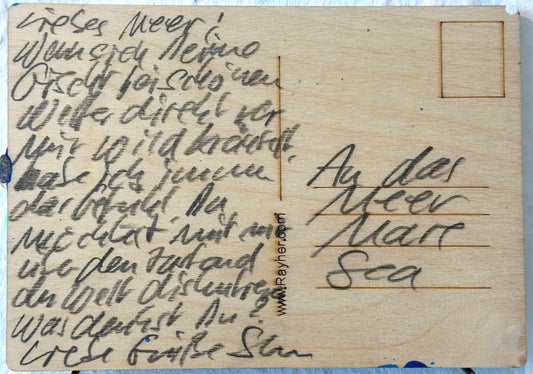 Liebes Meer!
Wenn sich Deine
Gischt bei schönen
Wetter direkt vor
mir wild kräuselt,
habe ich immer
das Gefühl, Du
möchtest mit mir
über den Zustand
der Welt diskutieren
Was denkst Du?
Liebe Grüße
www.Rayher.com
An das
Meer
Mare
Sea